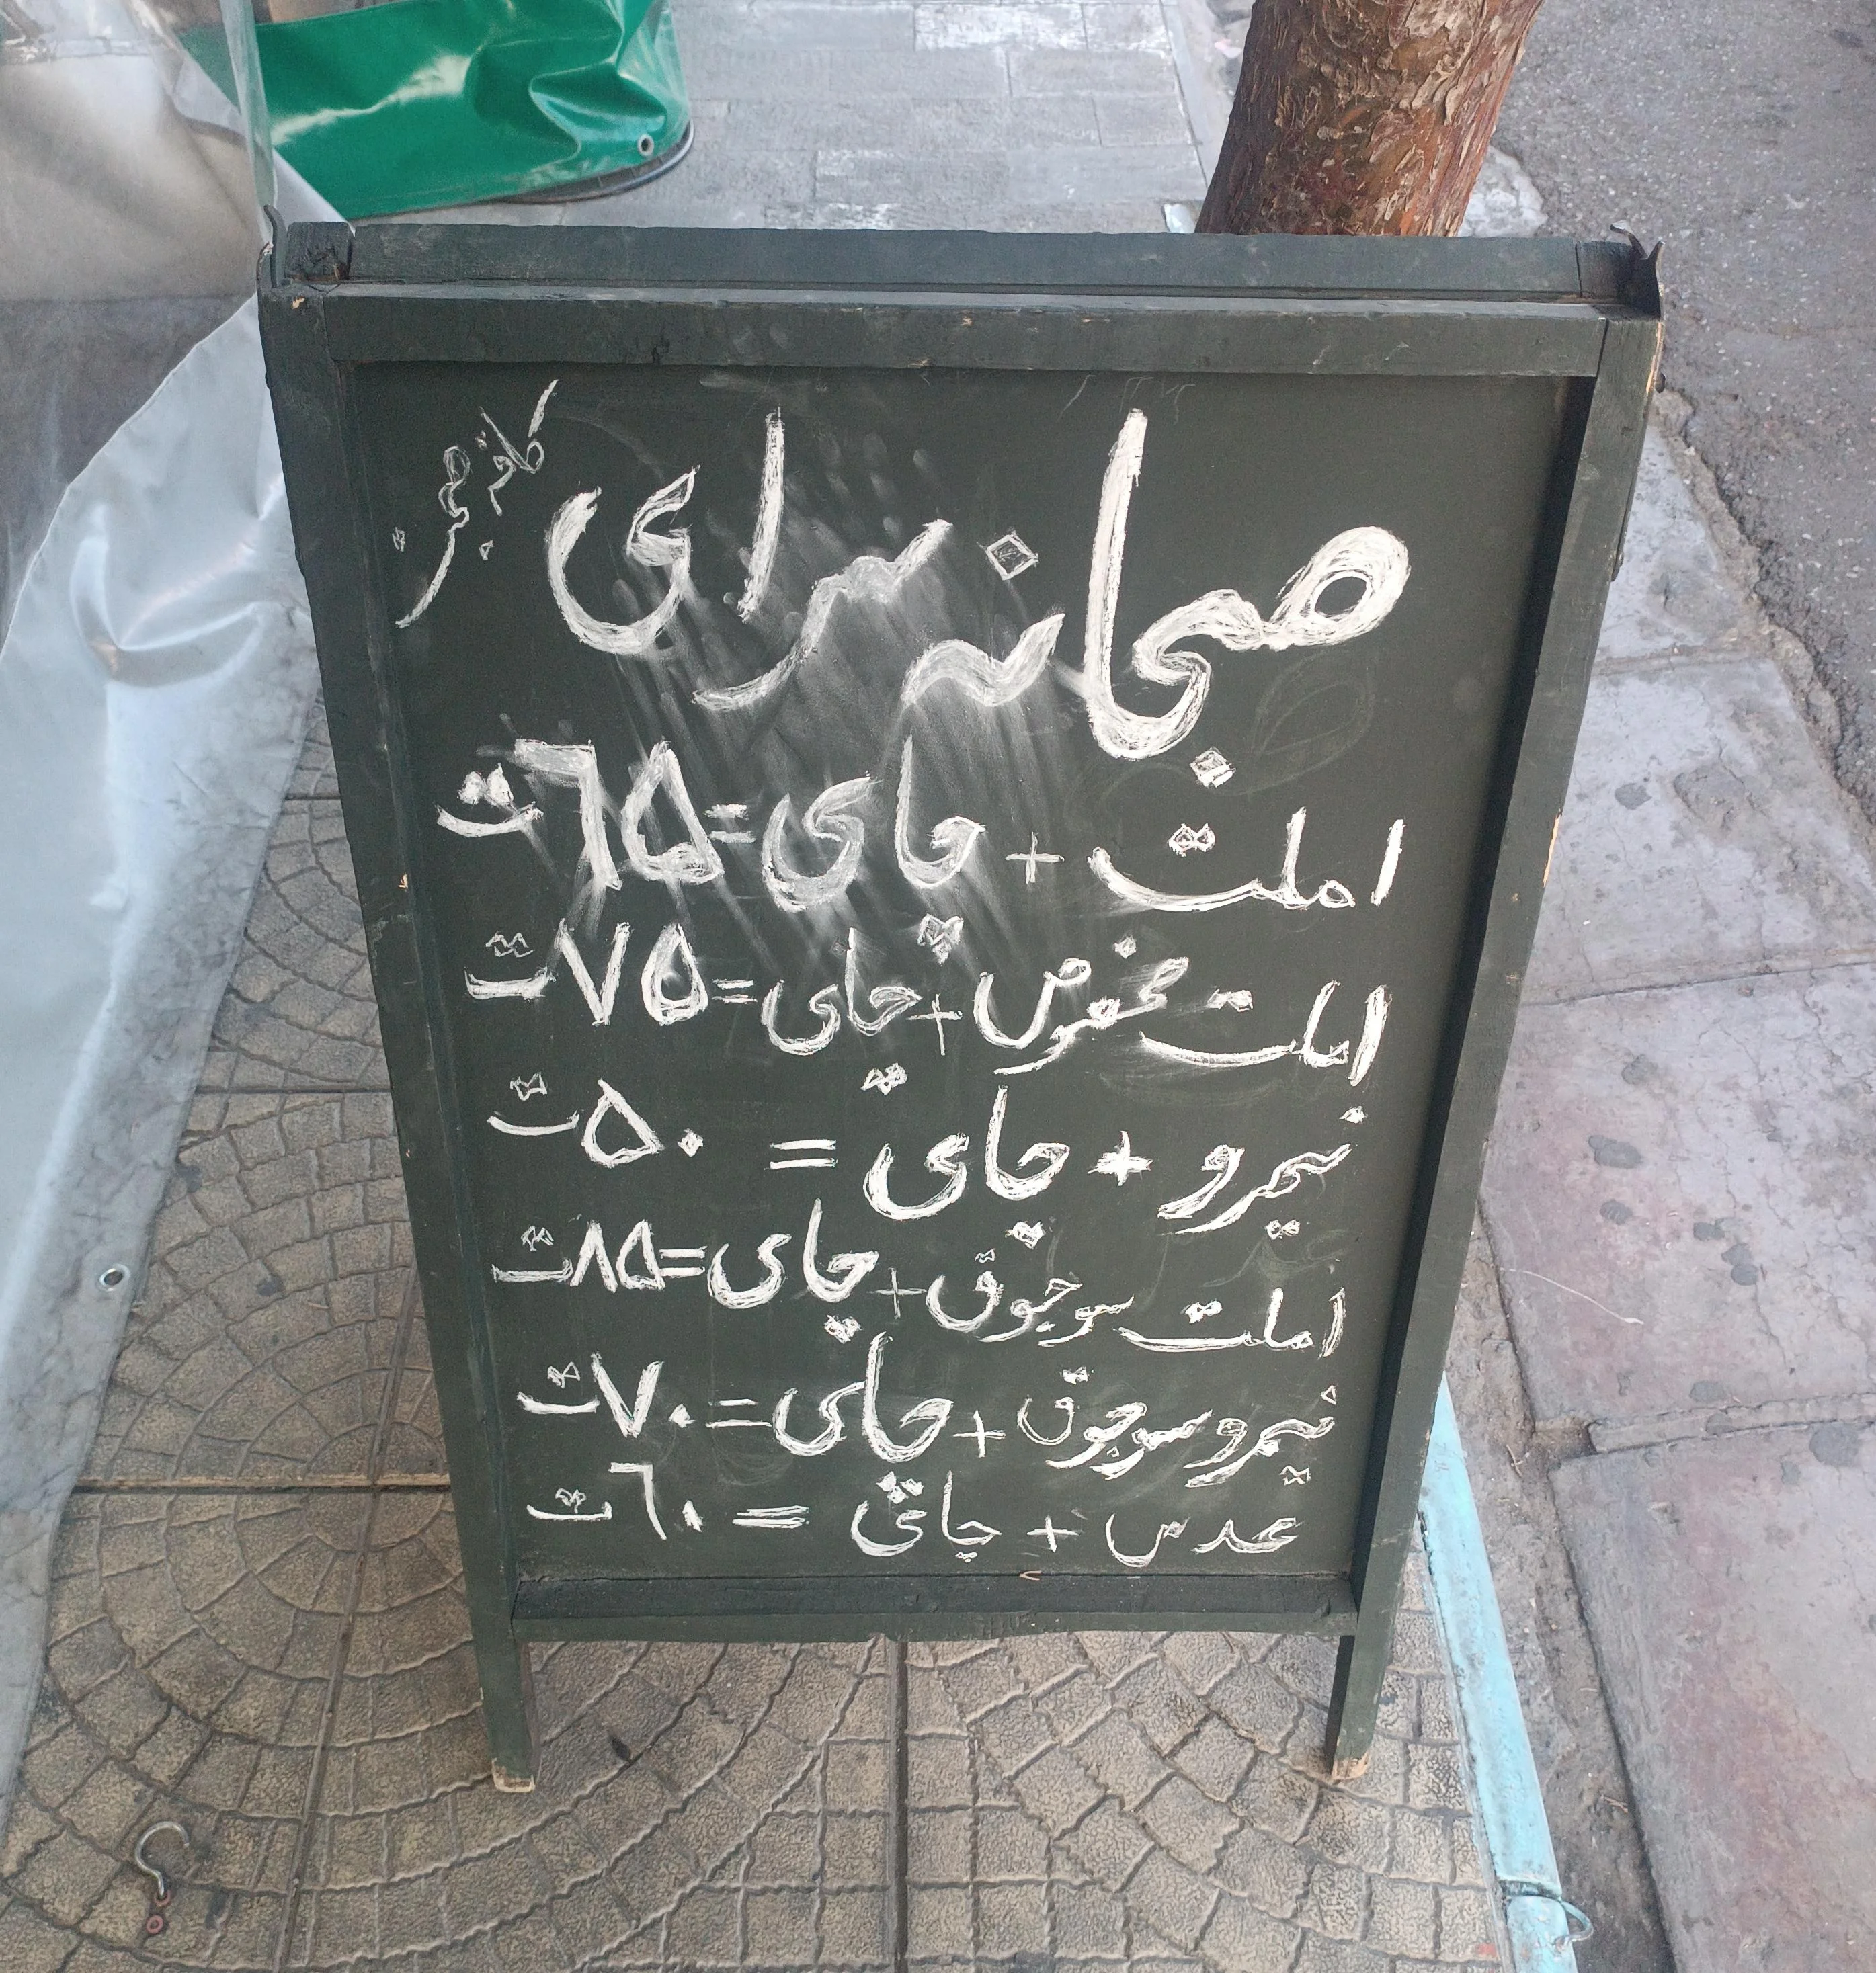 صبحانه سرای
املت + چای = ٦۵ ت
املت مخصوص + چای = ۷۵ ت
نیمرو + چای = ۵۰ ت
املت سوجوق + چای = ۸۵ ت
نیمرو سوجوق + چای = ۷۰ ت
عدس + چای = ٦۰ ت